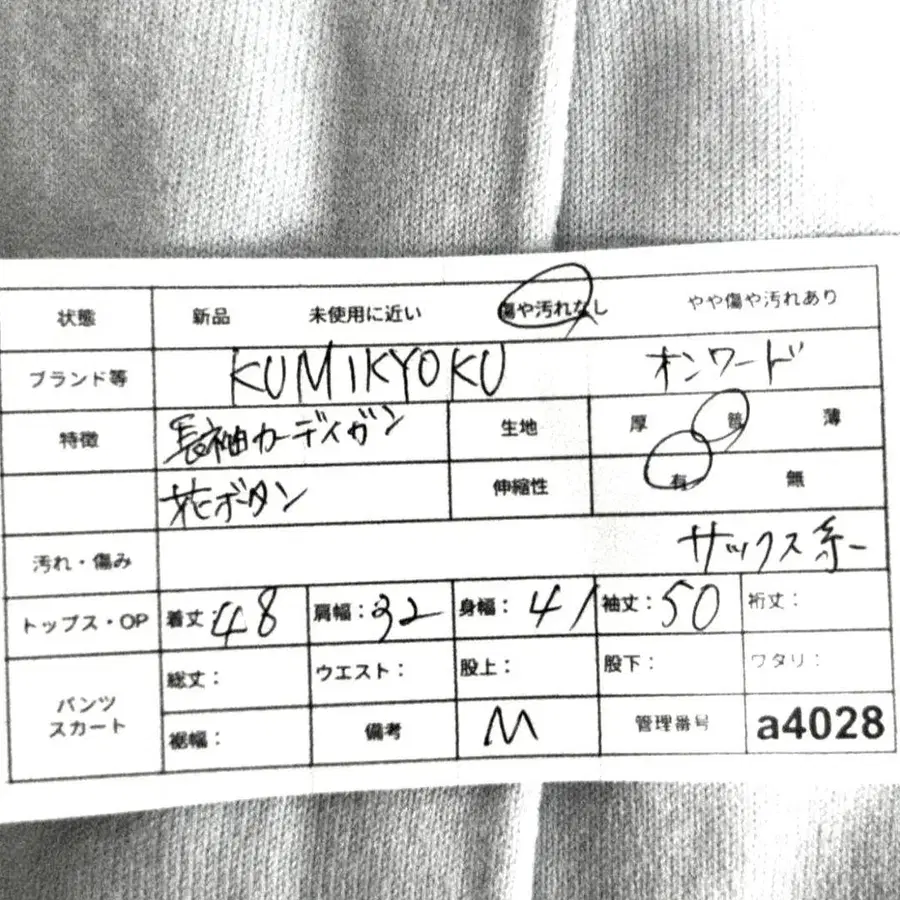 状態 新品 未使用に近い 傷や汚れなし やや傷や汚れあり
ブランド等 KUMIKYOKU オンワード
特徴 長袖カーディガン 生地 厚 普 薄
花ボタン 伸縮性 有 無
汚れ・傷み サックス系
トップス・OP 着丈:48 肩幅:32 身幅:41 袖丈:50 裄丈:
パンツ スカート 総丈: ウエスト: 股上: 股下: ワタリ:
裾幅: 備考 M 管理番号 a4028